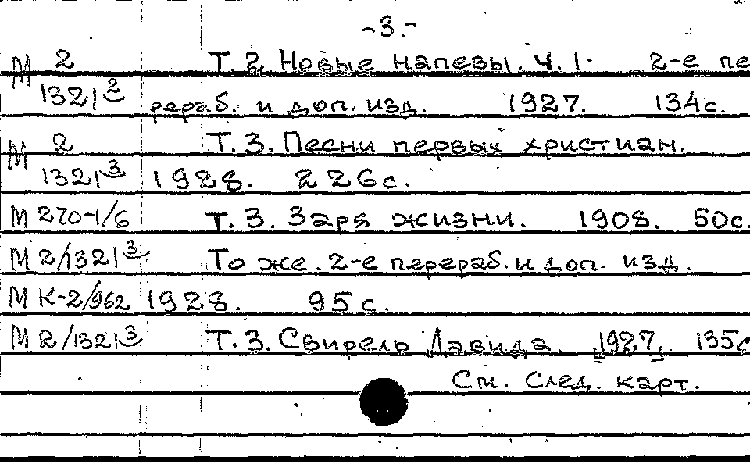 -3.-
М 2 Т. 2. Новые напевы. Ч. 1. 2-е пе
1321³ рераб. и доп. изд. 1927. 134с.
М 2 Т. 3. Песни первых христиан.
1321³ 1928. 226с.
М 270-1/6 Т. 3. Заря жизни. 1908. 50с.
М 2/1321³ То же. 2-е перераб. и доп. изд.
М К-2/962 1928. 95с.
М 2/1321³ Т. 3. Свирель Давида. 1927. 135с
См. след. карт.